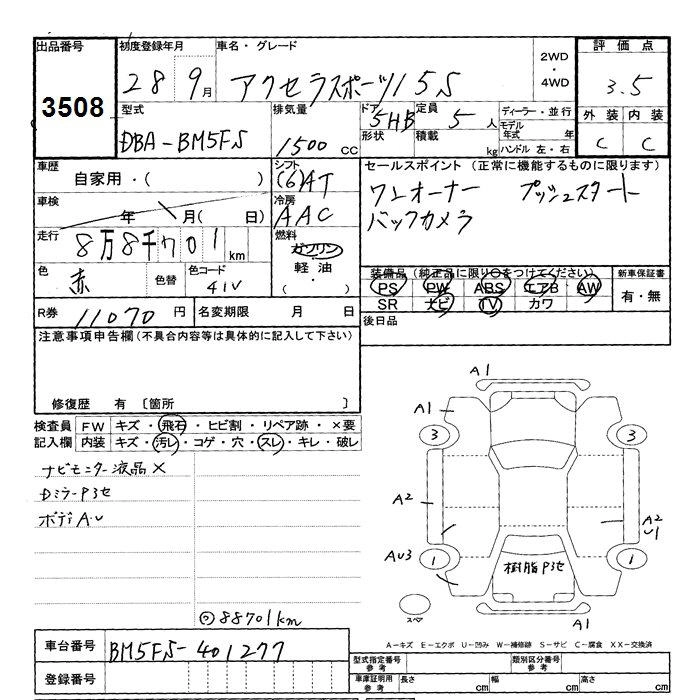 出品番号 初度登録年月 車名・グレード 2WD・4WD 評価点
3508 28 9月 アクセラスポーツ15S 3.5
型式 排気量 ドア 定員 ディーラー・並行 外装 内装
DBA-BM5FS 1500cc 5HB 5人 モデル年式 年 C C
形状 積載 kg ハンドル 左・右
車歴 シフト セールスポイント (正常に機能するものに限ります)
自家用・( ) (6)AT ワンオーナー プッシュスタート
車検 年 月( 日) 冷房 AAC バックカメラ
走行 8万8千701km 燃料 ガソリン・軽油・( )
色 赤 色替 色コード 41V 装備品 (純正品に限り○をつけてください) 新車保証書
PS PW ABS エアB AW 有・無
SR ナビ TV カワ
R券 11070円 名変期限 月 日 後日品
注意事項申告欄(不具合内容等は具体的に記入して下さい)
修復歴 有 〔箇所 〕
検査員 FW キズ・飛石・ヒビ割・リペア跡・×要
記入欄 内装 キズ・汚レ・コゲ・穴・スレ・キレ・破レ
ナビモニター液晶×
Dミラーアタセ
ボディA・U
◎88701km
A1
A1
3 3
A2 A2
U1
AU3 1 1
樹脂アタセ
スペア A1
A-キズ E-エクボ U-凹み W-補修跡 S-サビ C-腐食 XX-交換済
車台番号 BM5FS-401277 型式指定番号 参考 類別区分番号 参考
登録番号 車庫証明用 参考 長さ cm 幅 cm 高さ cm